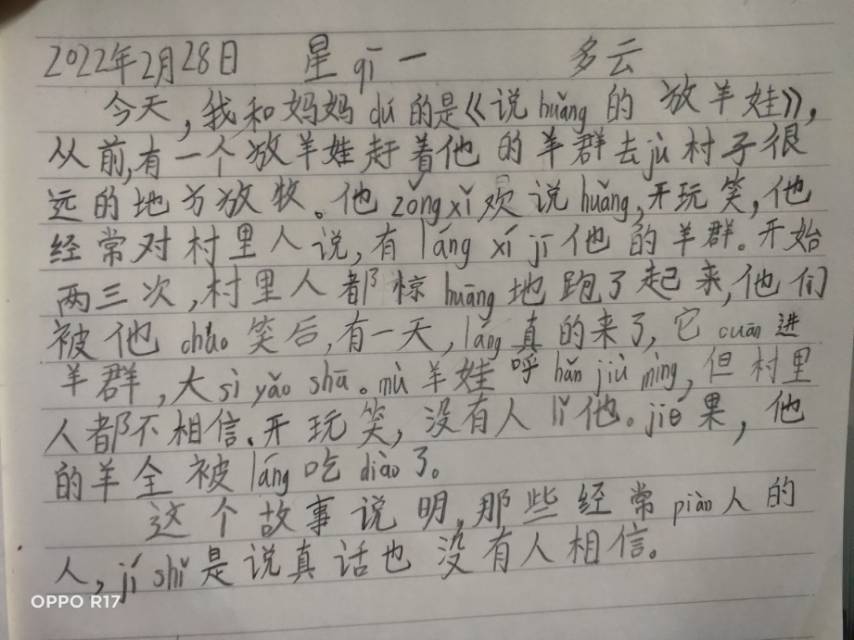 2022年2月28日 星qī一 多云
今天,我和妈妈dú的是《说huǎng的放羊娃》,
从前,有一个放羊娃赶着他的羊群去jù村子很
远的地方放牧。他zǒng xǐ欢说huǎng,开玩笑,他
经常对村里人说,有láng xí jī他的羊群。开始
两三次,村里人都惊huāng地跑了起来,他们
被他cháo笑后,有一天,láng真的来了,它cuān进
羊群,大sì yǎo shā。mù羊娃呼hǎn jiù mìng,但村里
人都不相信、开玩笑,没有人lǐ他。jié果,他
的羊全被láng吃diào了。
这个故事说明,那些经常piàn人的
人,jí shǐ是说真话也没有人相信。
OPPO R17